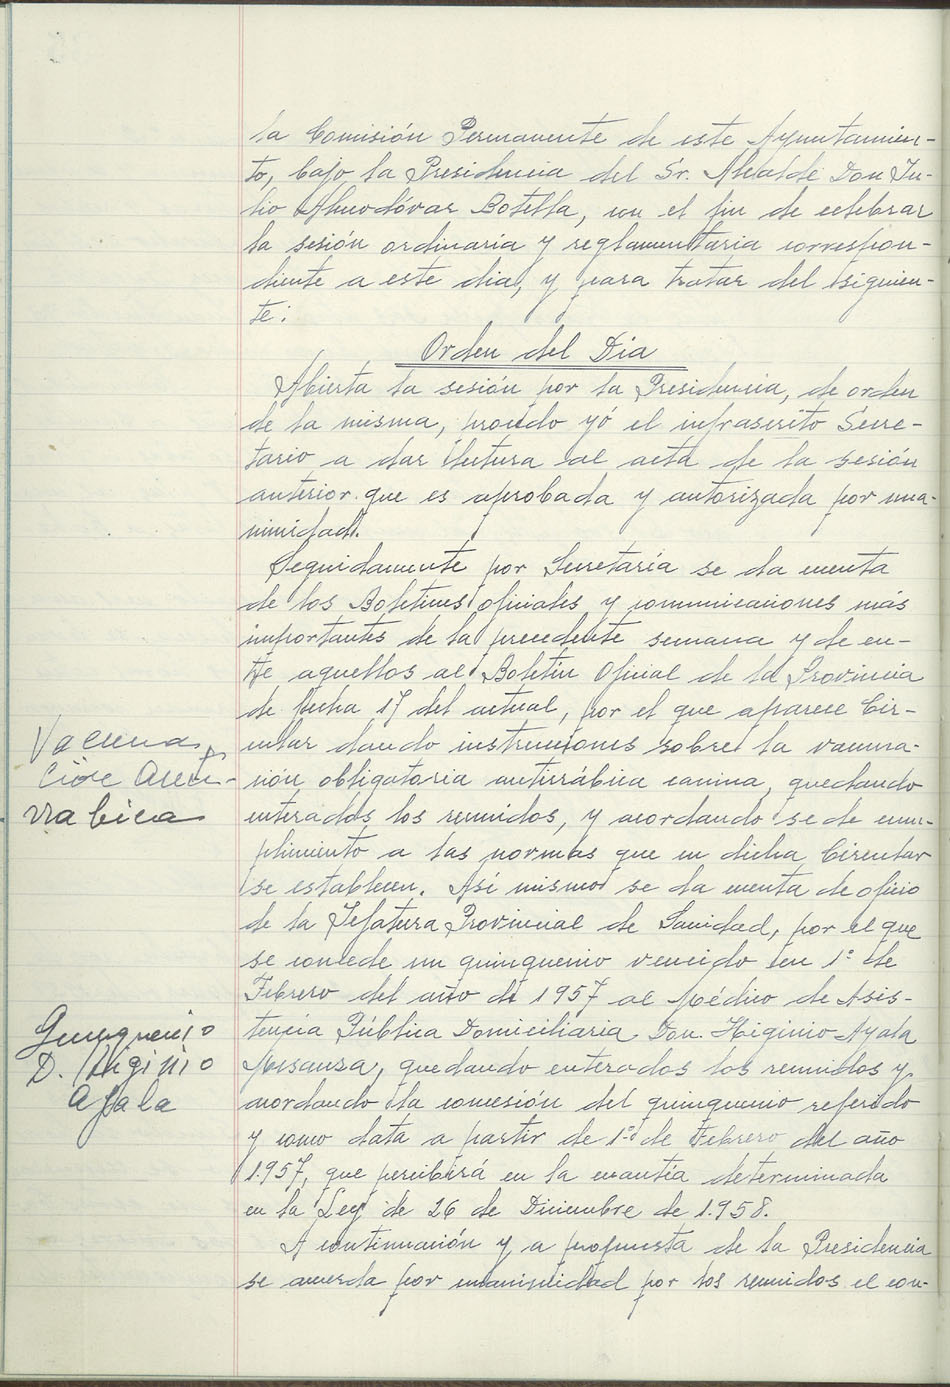 la Comisión Permanente de este Ayuntamien-
to, bajo la Presidencia del Sr. Alcalde Don Ju-
lio Almodóvar Botella, con el fin de celebrar
la sesión ordinaria y reglamentaria correspon-
diente a este dia, y para tratar del siguien-
te:
Orden del Dia
Abierta la sesión por la Presidencia, de orden
de la misma, procedo yó el infrascrito Secre-
tario a dar lectura al acta de la sesión
anterior que es aprobada y autorizada por una-
nimidad.
Seguidamente por Secretaría se da cuenta
de los Boletines oficiales y comunicaciones más
importantes de la precedente semana y de en-
tre aquellos al Boletín Oficial de la Provincia
de fecha 17 del actual, por el que aparece Cir-
cular dando instrucciones sobre la vacuna-
ción obligatoria antirrábica canina, quedando
enterados los reunidos, y acordando se de cum-
plimiento a las normas que en dicha Circular
se establecen. Así mismo se da cuenta de oficio
de la Jefatura Provincial de Sanidad, por el que
se concede un quinquenio vencido en 1º de
Febrero del año de 1957 al Medico de Asis-
tencia Pública Domiciliaria Don. Higinio Ayala
quedando enterados los reunidos y
acordando la concesión del quinquenio referido
y como data a partir de 1º de Febrero del año
1957, que percibirá en la cuantía determinada
en la Ley de 26 de Diciembre de 1.958.
A continuación y a propuesta de la Presidencia
se acuerda por unanimidad por los reunidos el con-
Vacuna
rabica
Quinquenio
D. Higinio
Ayala